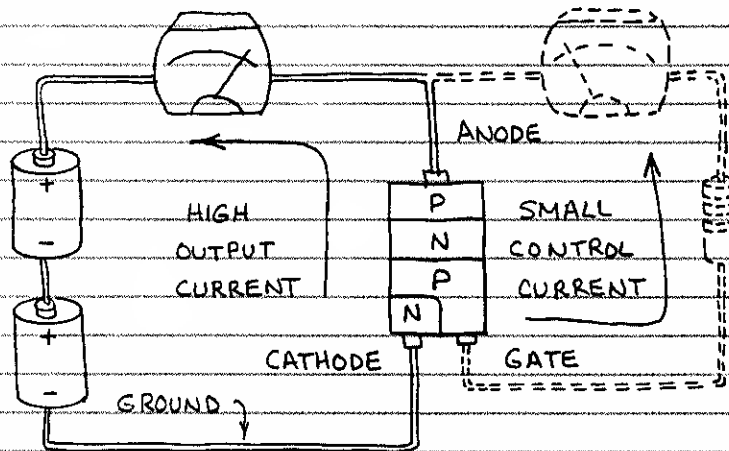 ANODE
HIGH
OUTPUT
CURRENT
P
N
P
N
SMALL
CONTROL
CURRENT
CATHODE
GATE
GROUND
+
-
+
-